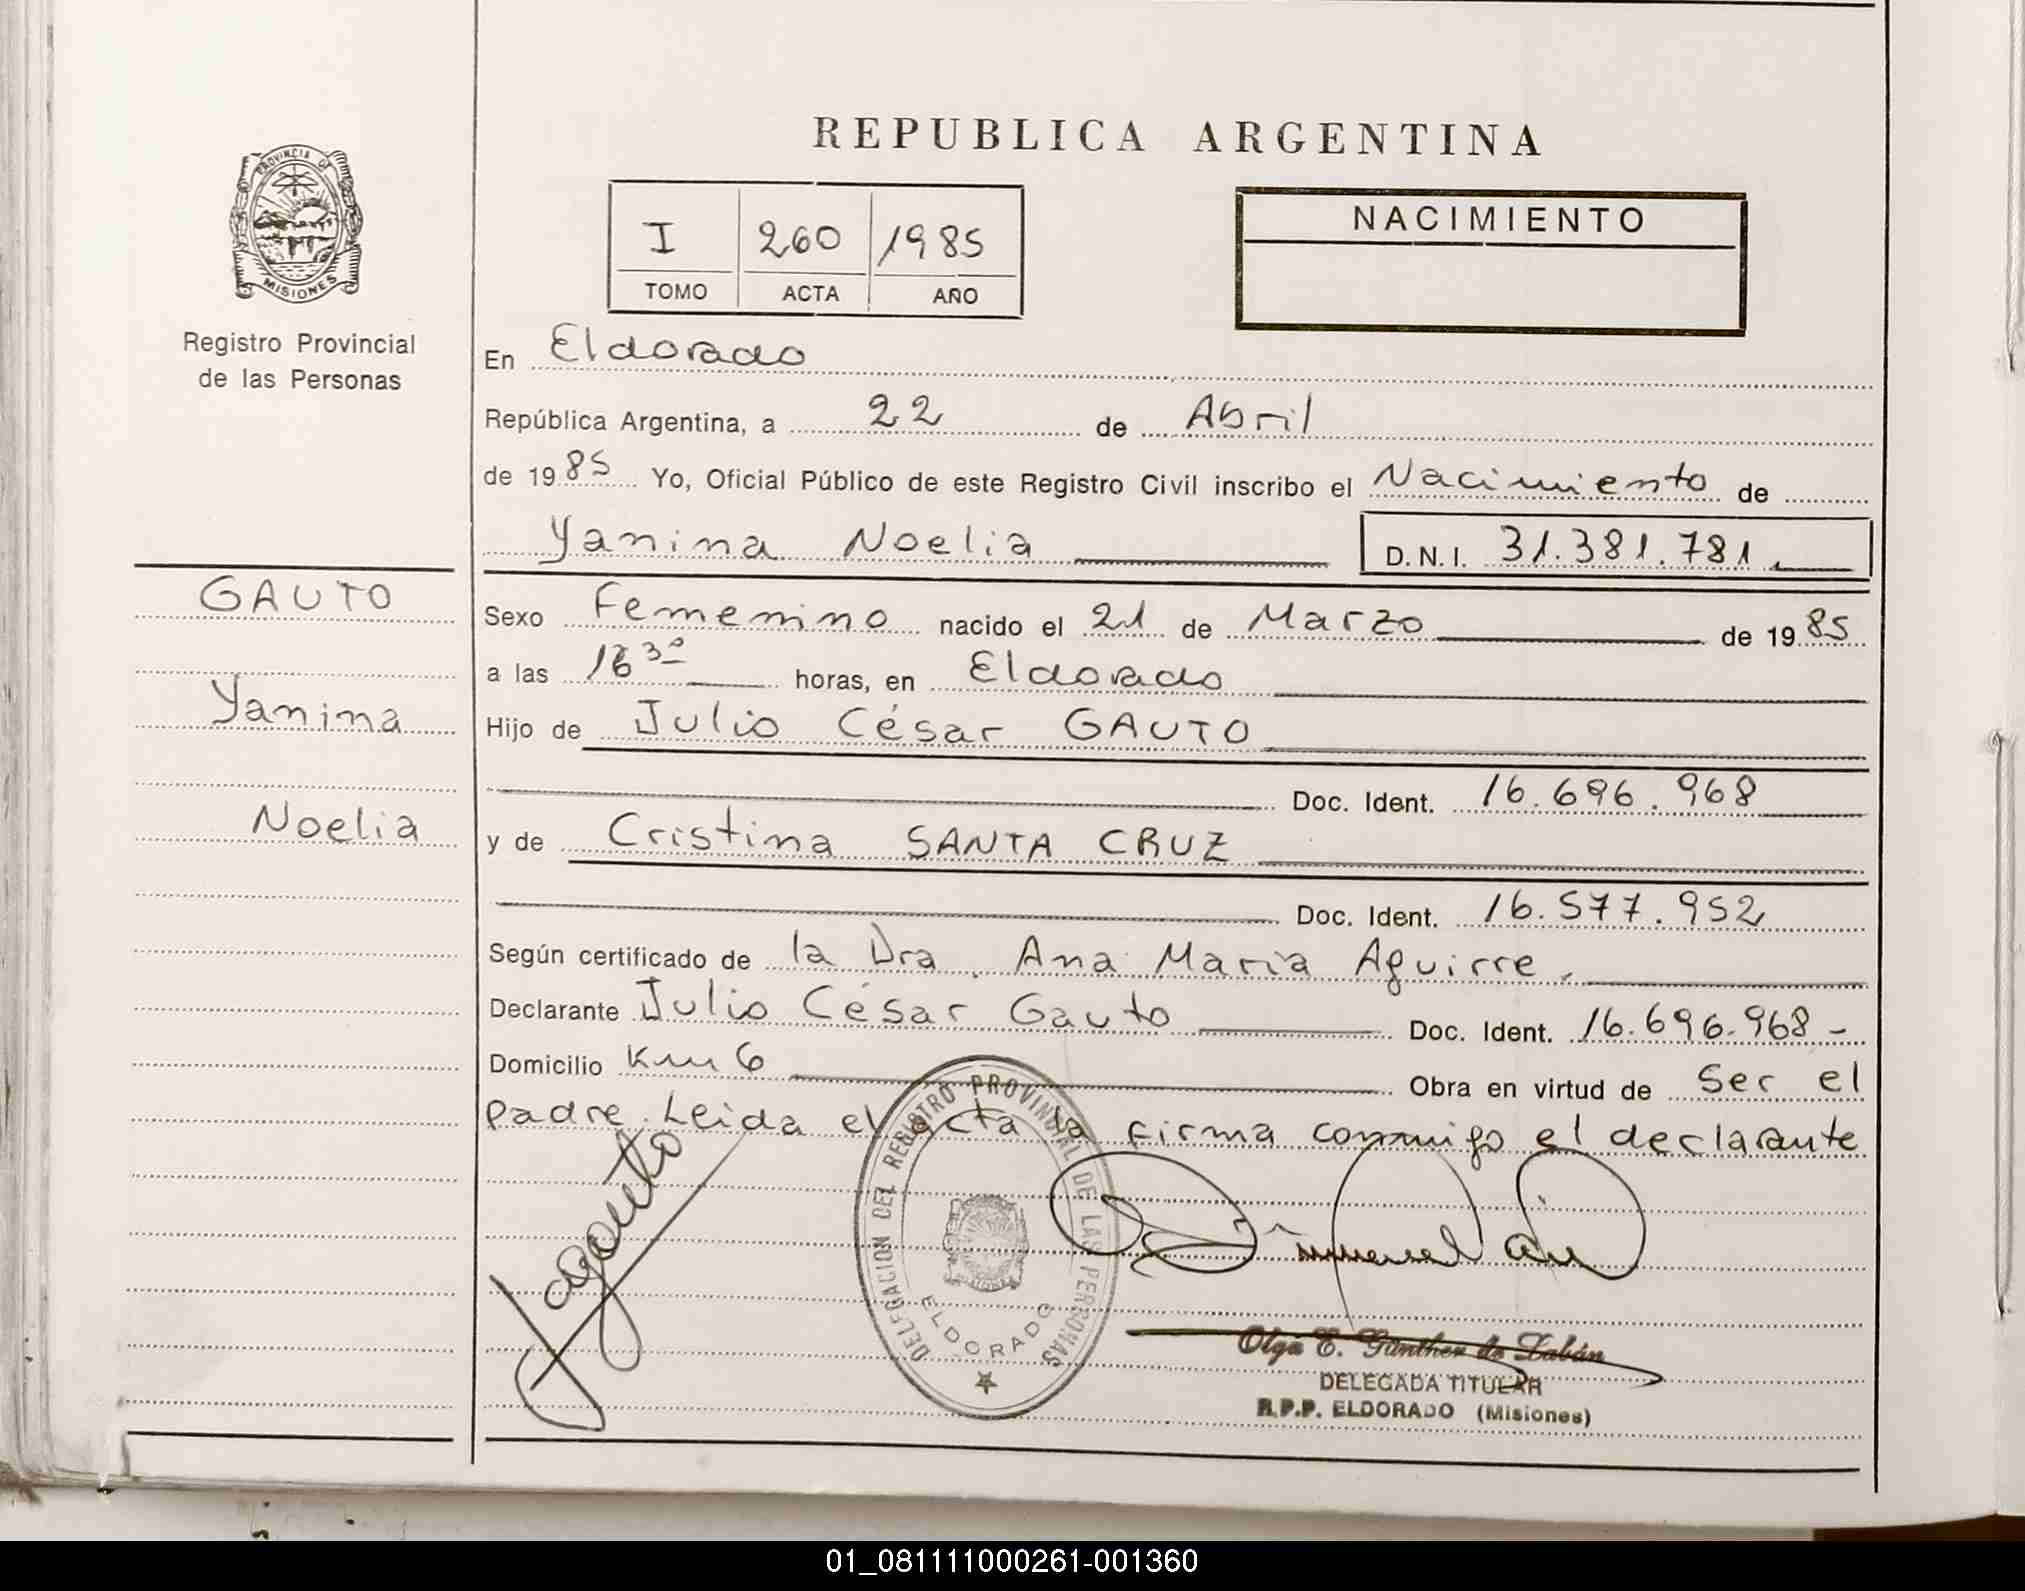 REPUBLICA ARGENTINA
PROVINCIA DE
MISIONES
Registro Provincial
de las Personas
I 260 1985
TOMO ACTA AÑO
NACIMIENTO
En Eldorado
República Argentina, a 22 de Abril
de 1985 Yo, Oficial Público de este Registro Civil inscribo el Nacimiento de
Yanina Noelia D.N.I. 31.381.781.
GAUTO
Yanina
Noelia
Sexo Femenino nacido el 21 de Marzo de 1985
a las 16 30 horas, en Eldorado
Hijo de Julio César GAUTO
Doc. Ident. 16.696.968
y de Cristina SANTA CRUZ
Doc. Ident. 16.577.952
Según certificado de la Dra. Ana María Aguirre.
Declarante Julio César Gauto Doc. Ident. 16.696.968-
Domicilio Km 6 Obra en virtud de Ser el
padre. Leida el acta la firma conmigo el declarante
DELEGACION DEL REGISTRO PROVINCIAL DE LAS PERSONAS
ELDORADO
Olga E. Günther de Zabán
DELEGADA TITULAR
R.P.P. ELDORADO (Misiones)
01_081111000261-001360